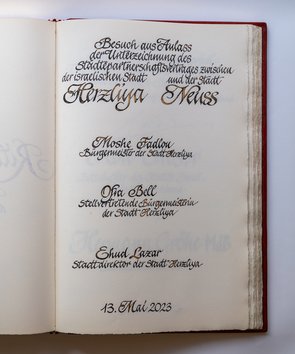 Besuch aus Anlass
der Unterzeichnung des
Städtepartnerschaftsvertrages zwischen
der israelischen Stadt und der Stadt
Herzliya Neuss
Moshe Fadlon
Bürgermeister der Stadt Herzliya
Ofra Bell
Stellvertretende Bürgermeisterin
der Stadt Herzliya
Ehud Lazar
Stadtdirektor der Stadt Herzliya
13. Mai 2023